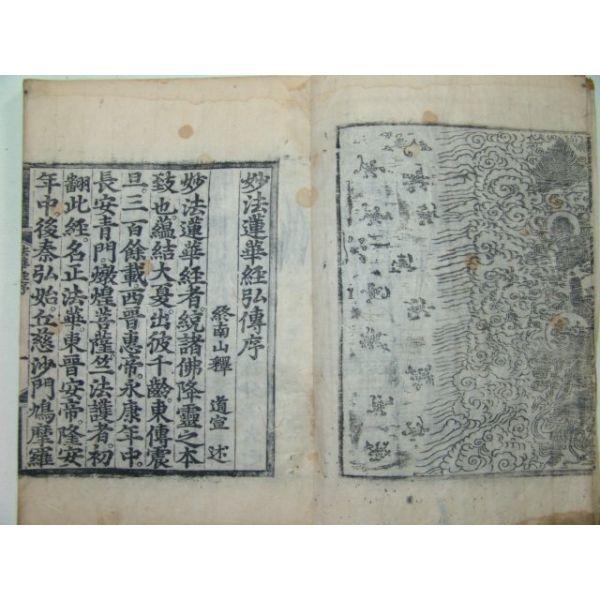 妙法蓮華經弘傳序
終南山釋 道宣 述
妙法蓮華經者統諸佛降靈之本
致也蘊結大夏。出彼千齡。東傳震
旦。三百餘載。西晉惠帝永康年中。
長安青門。燉煌菩薩竺法護者初
翻此經。名正法華東晉安帝隆安
年中後秦弘始。丘慈沙門鳩摩羅